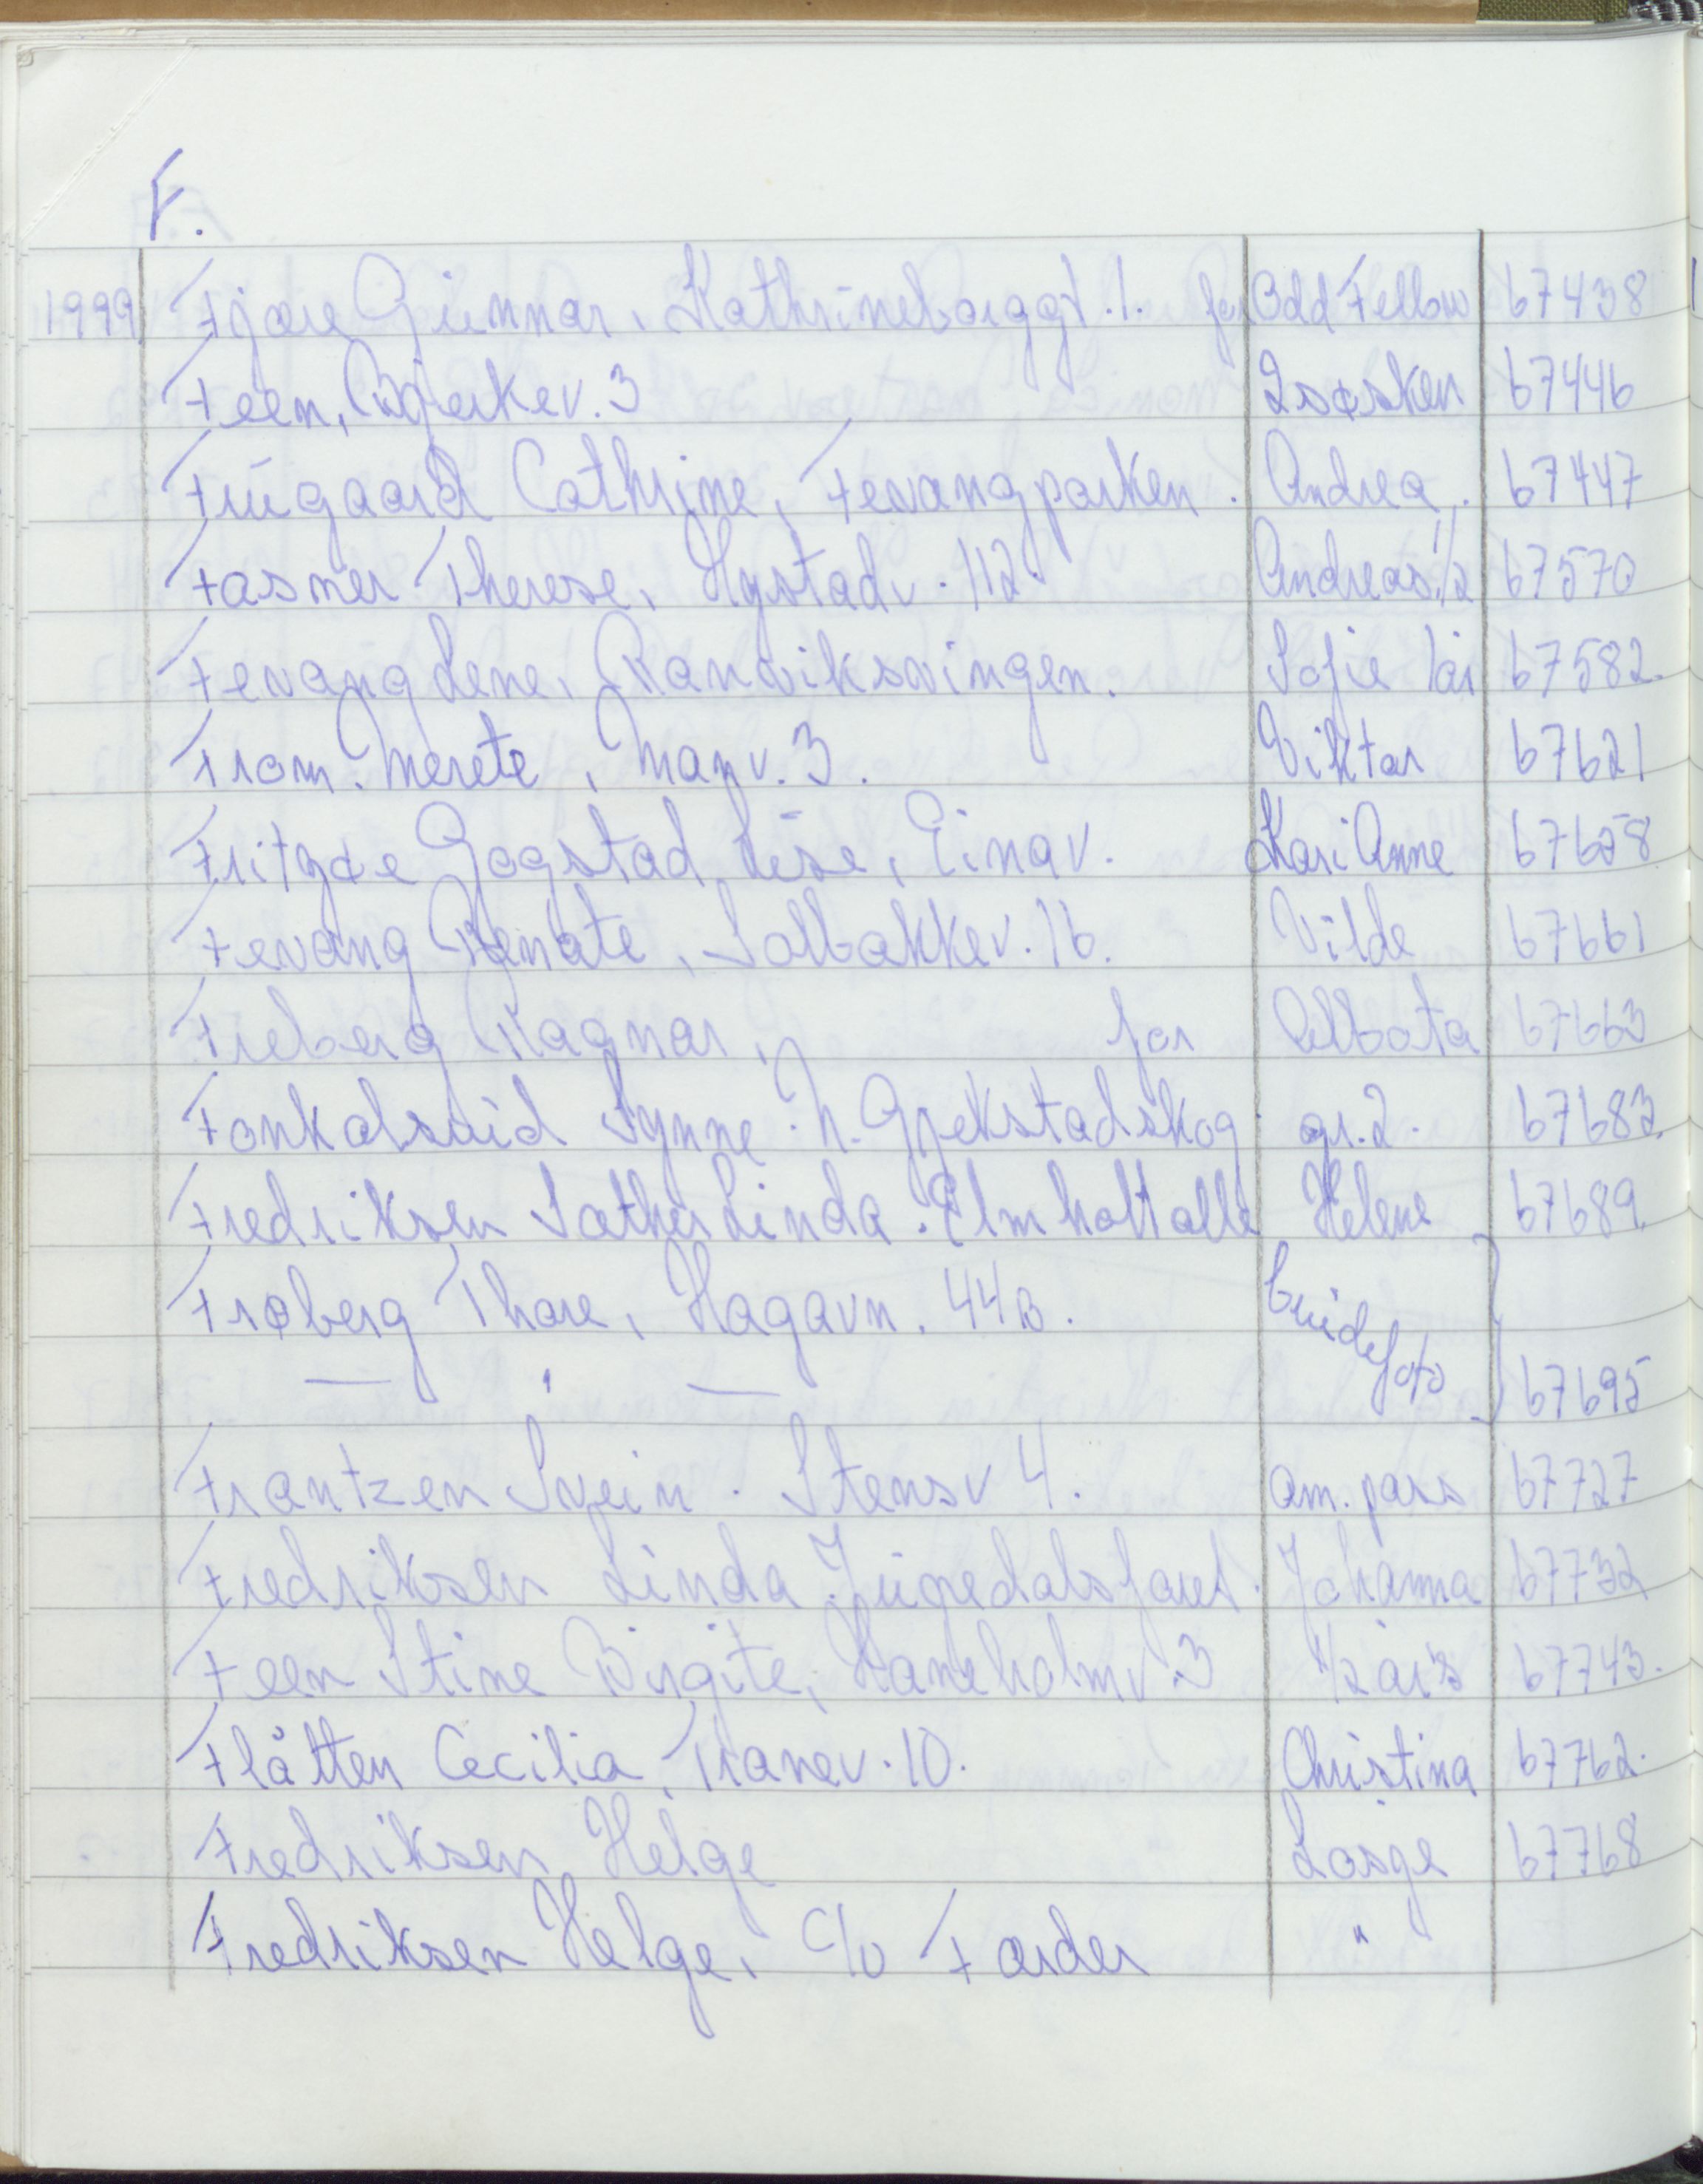 F.
1999 Fjære Gunnar, Kathrineborggt. 1. for Odd Fellow 67438
Feen, Bjerkev. 3 2 søsken 67446
Frugaard Cathrine, Fevangparken. Andrea. 67447
Fasmer Therese, Hystadv. 112 Andreas 1/2 67570
Fevang Lene, Ranviksvingen. Sofie 1år 67582.
From Merete, 3. Viktor 67621
Fritzøe Gogstad Lise, Einav. Kari Anne 67658
Fevang Renate, Solbakkev. 16. Vilde 67661
Freberg Ragnar, for 67663
Fonkalsrud Synne. N. Gjekstadskog gr. 2. 67682.
Fredriksen Sæther Linda. Elmholt alle Helene 67689.
Frøberg Thore, Hagavn. 44B. brudefoto
— " — 67695
Frantzen Svein. Stensv 4. am. pass 67727
Fredriksen Linda Furedalsfaret. Johanna 67732
Feen Stine Birgite, Haneholmv. 3 1/2 år's 67743.
Flåtten Cecilia, Tranev. 10. Christina 67762.
Fredriksen Helge Losge 67768
Fredriksen Helge, c/o Færder "